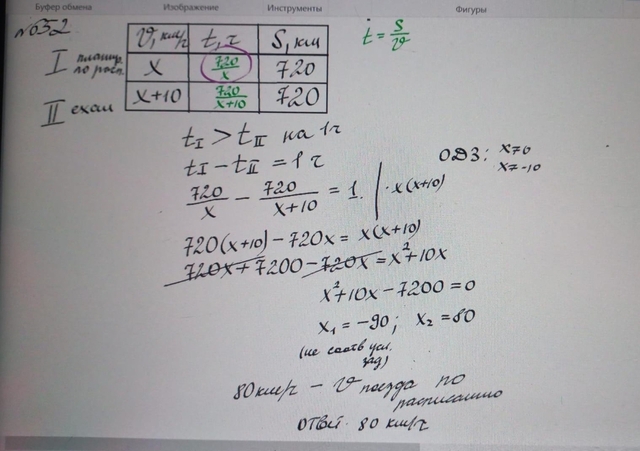 Буфер обмена Изображение Инструменты Фигуры
№652
v, км/ч t, ч S, км
t = S/v
I планир. по расп. x 720/x 720
II ехал x+10 720/(x+10) 720
tI > tII на 1ч
tI − tII = 1 ч
ОДЗ: x≠0
x≠-10
720/x − 720/(x+10) = 1 | · x(x+10)
720(x+10) − 720x = x(x+10)
720x + 7200 − 720x = x²+10x
x²+10x − 7200 = 0
x₁ = −90; x₂ = 80
(не соотв усл. зад)
80 км/ч − v поезда по
расписанию
ответ. 80 км/ч